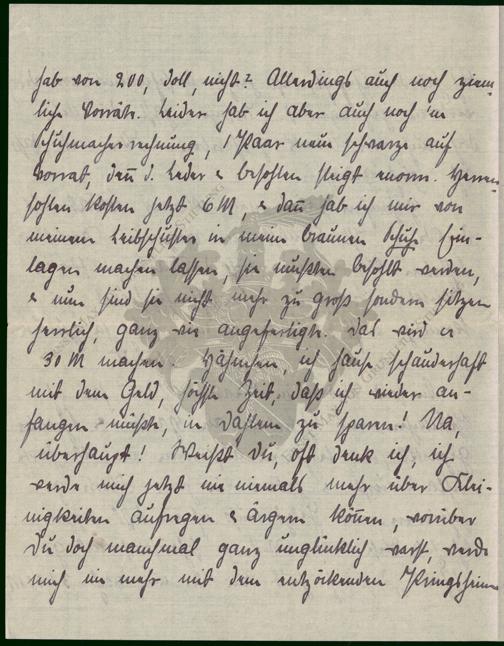 hab von 200, doll, nicht? Allerdings auch noch ziem-
liche Vorräte. Leider hab ich aber auch noch 'ne
Schuhmacherrechnung, 1 Paar neue schwarze auf
Vorrat, deñ d. Leder & besohlen steigt enorm. Herren-
sohlen kosten jetzt 6 M, & dañ hab ich mir von
meinem Leibschuster in meine braunen Schuhe Ein-
lagen machen lassen, sie mußten besohlt werden,
& nun sind sie nicht mehr zu groß sondern sitzen
herrlich, ganz wie angefertigt. Das wird ca
30 M machen. ich hause schauderhaft
mit dem Geld, höchste Zeit, daß ich wieder an-
fangen müßte, in Dahlem zu sparen! Na,
überhaupt! Weißt Du, oft denk ich, ich
werde mich jetzt nie niemals mehr über Klei-
nigkeiten aufregen & ärgern köñen, worüber
Du doch manchmal ganz unglücklich warst, werde
mich nie mehr mit dem entzückenden Pringsheim